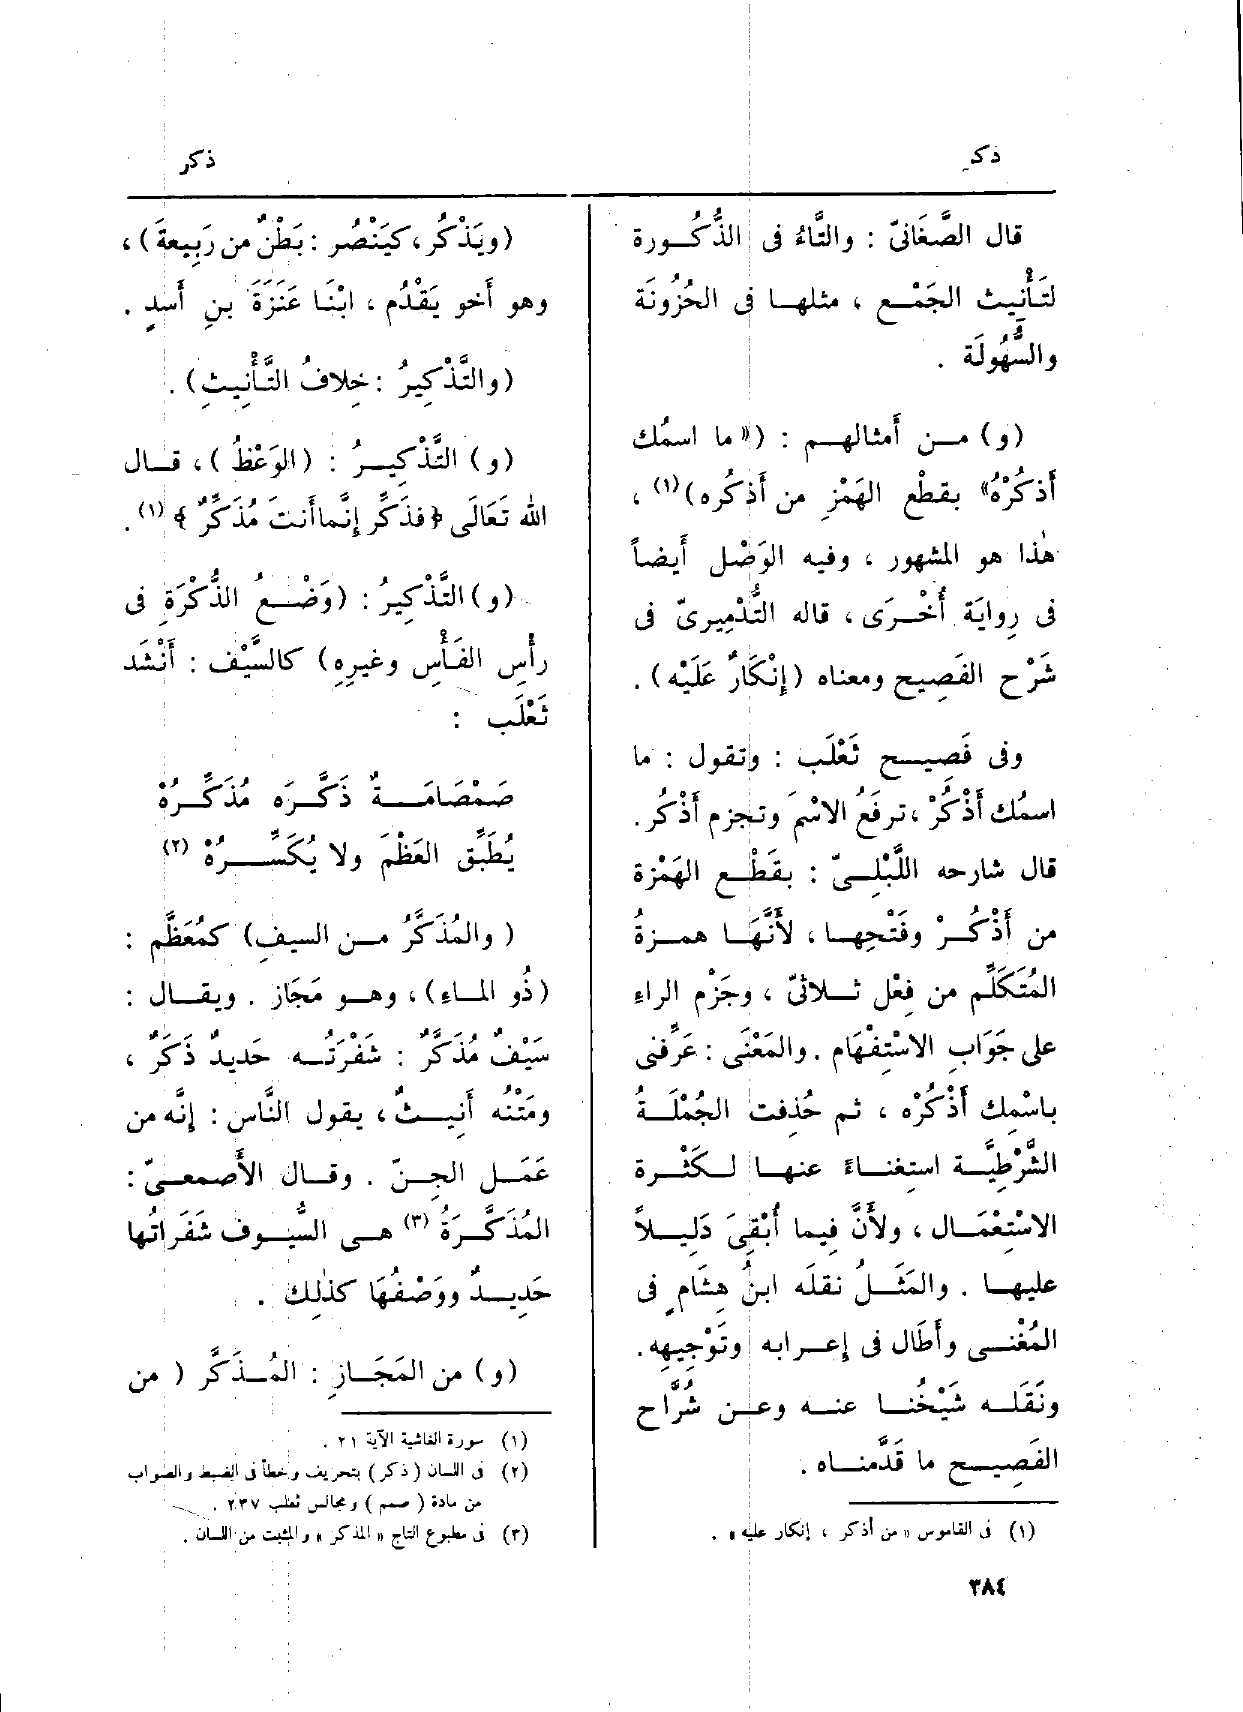 ذكر
ذكر
قال الصَّغَانىّ : والتَّاءُ فى الذُّكُـورة
لتَأْنِيث الجَمْـع ، مثلهـا فى الحُزُونَة
والسُّهُولَة .
(و) مـن أَمثالهـم : («ما اسمُك
أَذكُرْهُ» بقطْع الهَمْزِ من أَذكُره)(١) ،
هٰذا هو المشهور ، وفيه الوَصْل أَيضاً
فى رِوايَة أُخْـرَى ، قاله التُّدْمِيرىّ فى
شَرْح الفَصِيح ومعناه (إِنْكَارٌ عَلَيْه) .
وفى فَصِيـح ثَعْلَب : وتقول : ما
اسمُك أَذْكُرْ ، ترفَعُ الاسْمَ وتجزم أَذْكُر.
قال شارحه اللَّبْلـىّ : بقَطْـع الهَمْزة
من أَذْكُـرْ وفَتْحِهـا ، لأَنَّهَـا همـزةُ
المُتَكَلِّم من فِعْل ثـلاثىّ ، وجَزْم الراءِ
على جَوَابِ الاسْتِفْهَام . والمَعْنَى : عَرِّفنى
باسْمِك أَذْكُرْه ، ثم حُذِفت الجُمْلَـةُ
الشَّرْطِيَّـة استغناءً عنهـا لـكَثْـرة
الاسْتِعْمَـال ، ولأَنَّ فِيما أُبْقِىَ دَلِيـلاً
عليهـا . والمَثَـلُ نقلَه ابنُ هِشَامٍ فى
المُغْنـى وأَطَال فى إِعـرابه وتَوْجِيهِه.
ونَقَلـه شَيْخُنـا عنـه وعـن شُرَّاح
الفَصِيـح ما قَدَّمنـاه .
(١) فى القاموس « من أذكر ، إنكار عليه » .
٣٨٤
(ويَذْكُر ، كيَنْصُر : بَطْنٌ من رَبِيعةَ) ،
وهو أَخو يَقْدُم ، ابْنَا عَنَزَةَ بنِ أَسدٍ .
(والتَّذْكِيرُ : خِلافُ التَّأْنِيثِ) .
(و) التَّذْكِيـرُ : (الوَعْظُ) ، قـال
الله تَعَالَى ﴿فذَكِّر إِنَّما أَنتَ مُذَكِّرٌ ﴾ (١).
(و) التَّذْكِيرُ : (وَضْـعُ الذُّكْرَةِ فى
رأْسِ الفَأْسِ وغيرِهِ) كالسَّيْف : أَنْشَد
ثَعْلَب :
صَمْصَامَـةٌ ذَكَّـرَه مُذَكِّـرُهْ
يُطَبِّق العَظْمَ ولا يُكَسِّـرُهْ (٢)
( والمُذَكَّرُ مـن السيفِ) كمُعَظَّم :
(ذُو المـاءِ) ، وهـو مَجَاز . ويقـال :
سَيْفٌ مُذَكَّرٌ : شَفْرَتُـه حَديدٌ ذَكَرٌ ،
ومَتْنُه أَنِيـثٌ ، يقول النَّاس : إِنَّه من
عَمَـل الجـنّ . وقـال الأَصمعـىّ :
المُذَكَّـرَةُ (٣) هـى السُّيـوف شَفَرَاتُها
حَدِيـدٌ ووَصْفُهَا كذٰلِك .
(و) من المَجَـازِ : المُـذَكَّر ( من
(١) سورة الغاشية الآية ٢١ .
(٢) فى اللسان (ذكر) بتحريف وخطأ فى الضبط والصواب
من مادة ( صمم ) ومجالس ثعلب ٢٣٧ .
(٣) فى مطبوع التاج « المذكر » والمثبت من اللسان .